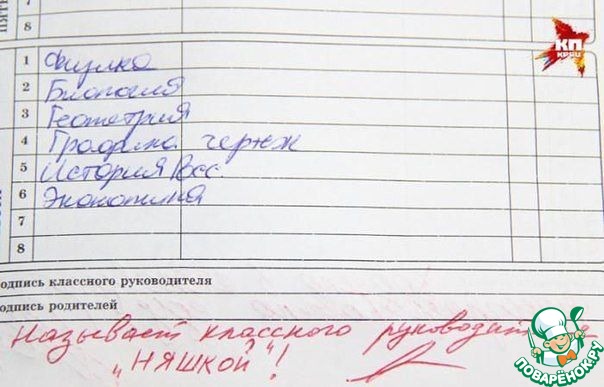 8
1 Физика
2 Биология
3 Геометрия
4 Графика чертж
5 История Росс
6 Экономика
7
8
одпись классного руководителя
одпись родителей
Называет классного руководит
"НЯШКОЙ"!
КП
ПОВАРЁНОК.РУ